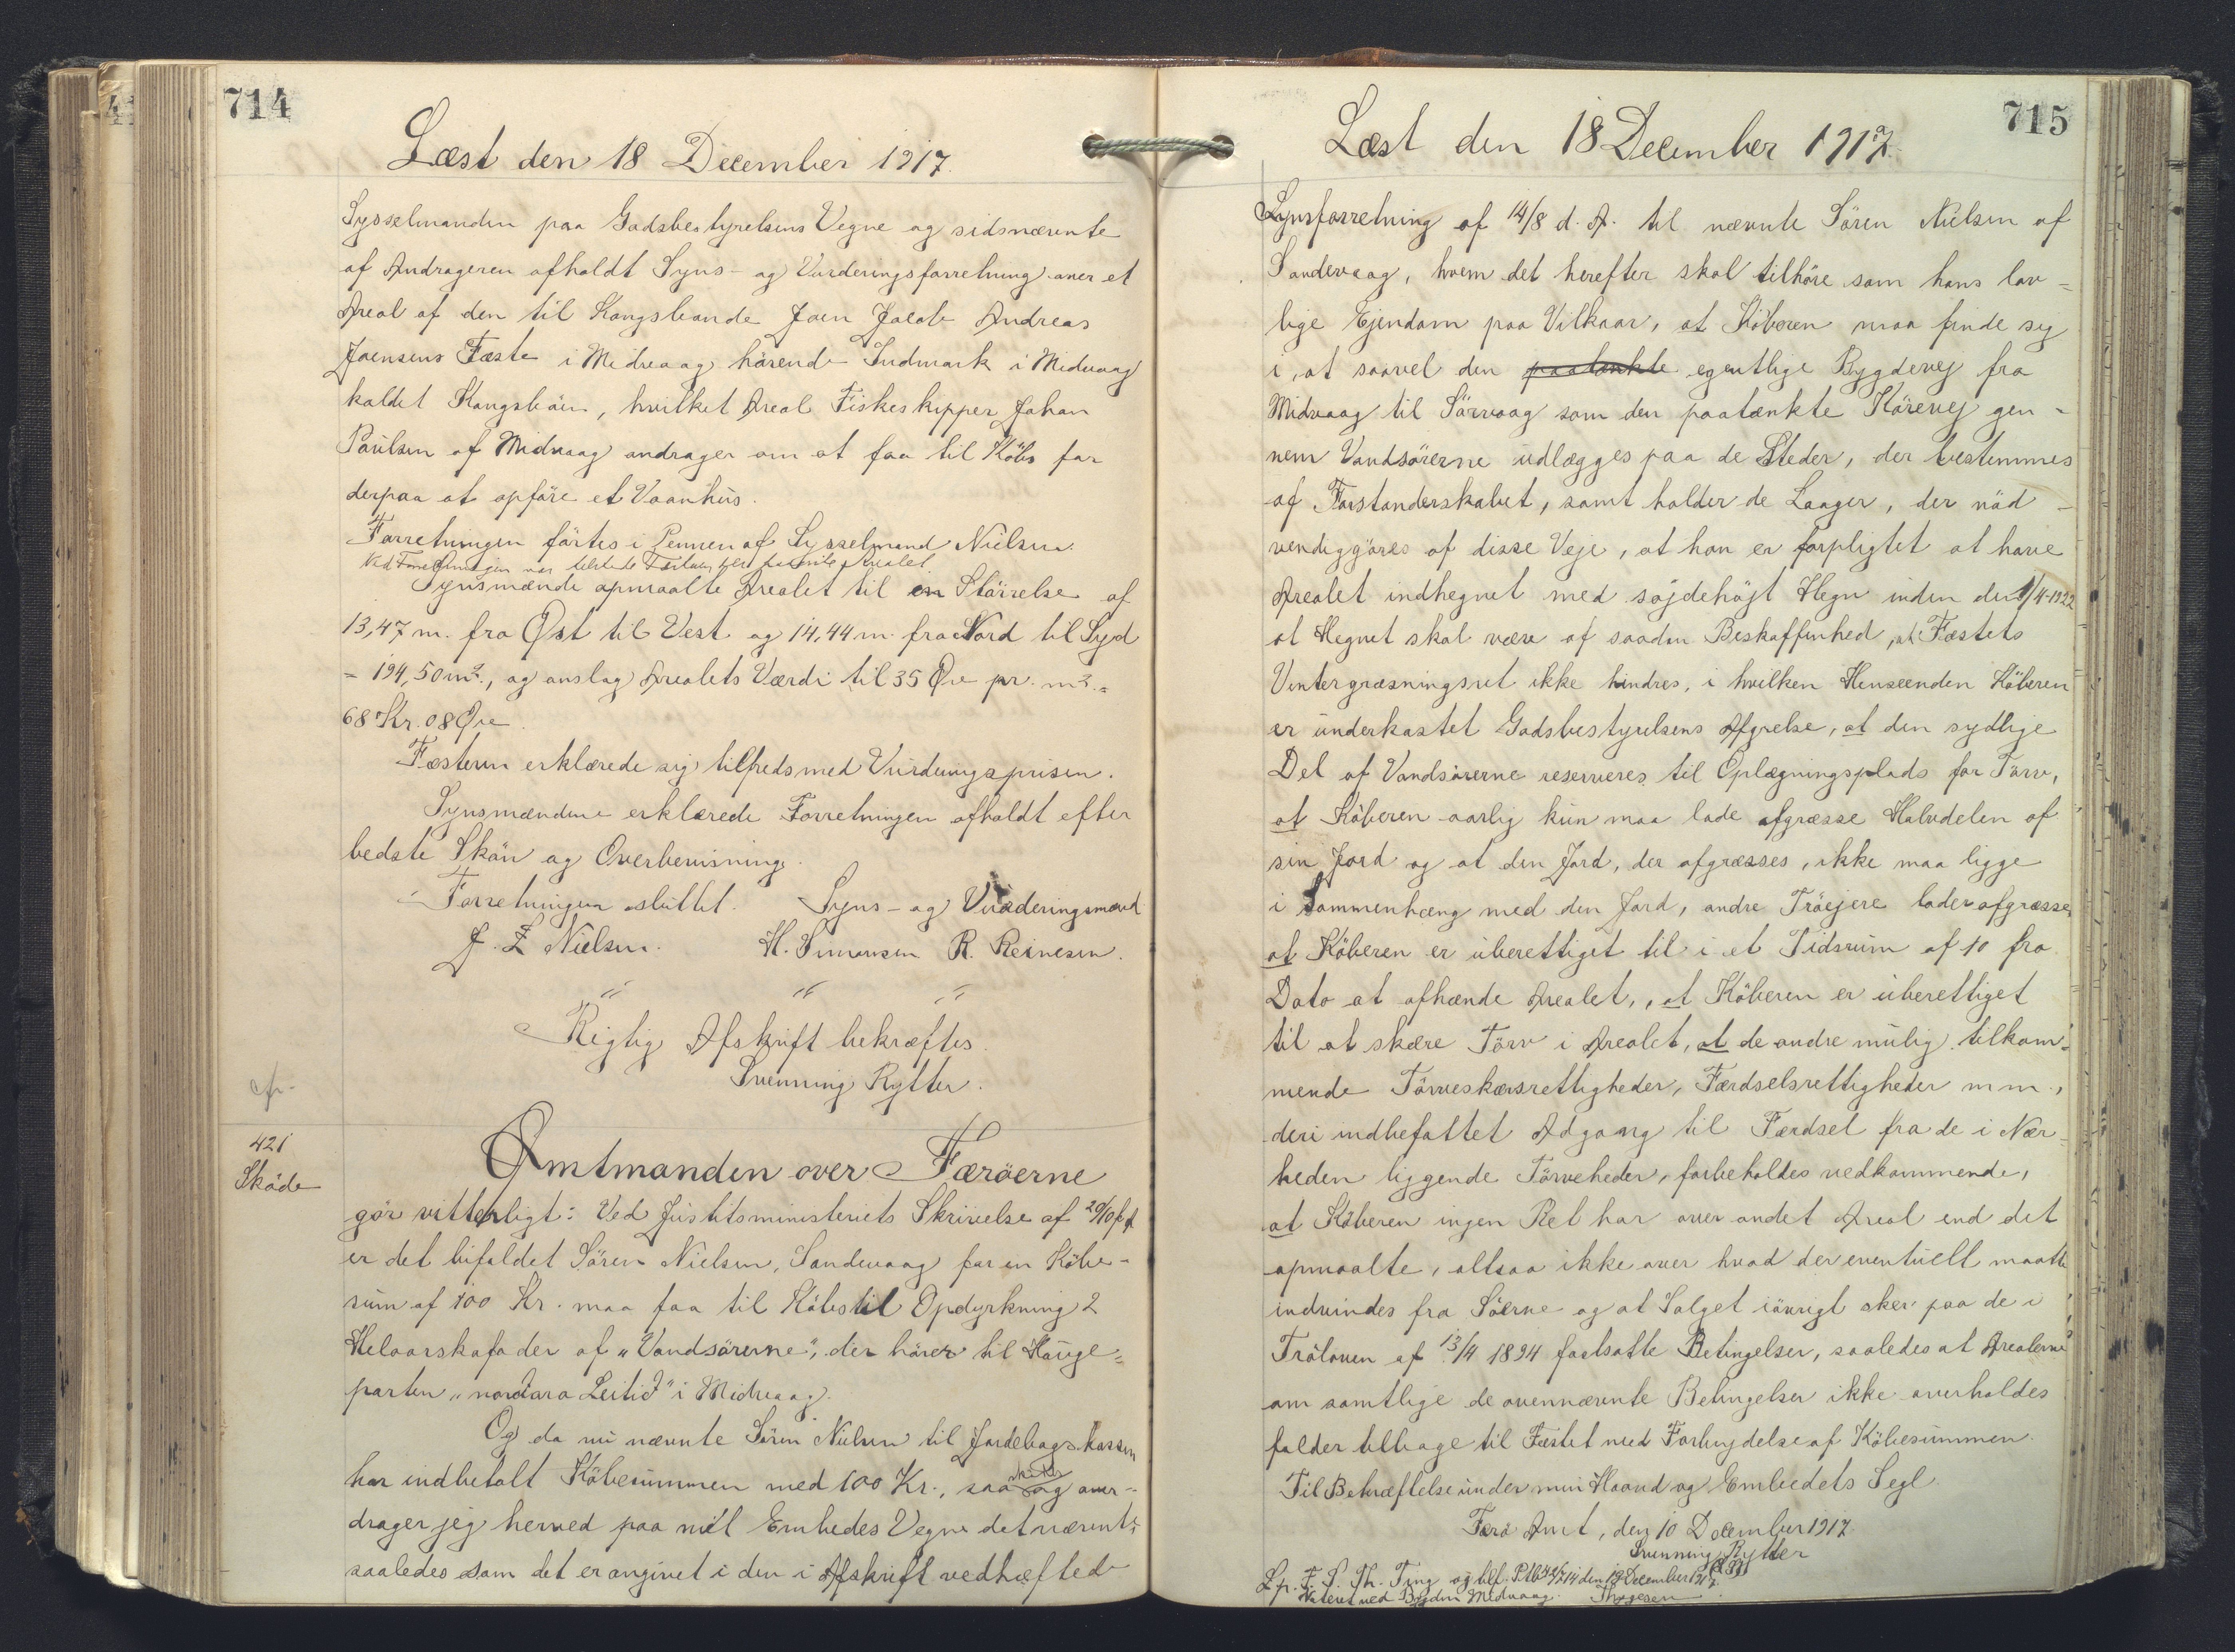 714
Læst den 18 December 1917.
Sysselmanden paa Godsbestyrelsens Vegne og sidsnævnte
af Andrageren afholdt Syns- og Vurderingsforretning over et
Areal af den til Kongsbonde Joen Jacob Andreas
Joensens Fæste i Midvaag hörende Indmark i Midvaag
kaldet Kongsböin, hvilket Areal Fiskeskipper Johan
Poulsen af Midvaag andrager om at faa til Köbs for
derpaa at opföre et Vaanhus.
Forretningen förtes i Pennen af Sysselmand Nielsen.
Ved Forretningen var tilstede Fæsteren
Synsmænde opmaalte Arealet til en Störrelse af
13,47 m. fra Øst til Vest og 14,44 m. fra Nord til Syd
= 194,50 m²., og anslog Arealets Værdi til 35 Øre pr. m². =
68 Kr. 08 Øre.
Fæsteren erklærede sig tilfreds med Vurderingsprisen.
Synsmændene erklærede Forretningen afholdt efter
bedste Skön og Overbevisning.
Forretningen sluttet. Syns- og Vurderingsmænd
J. Z Nielsen. H. Simonsen R. Reinesen.
" " "
Rigtig Afskrift bekræftes.
Svenning Rytter.
cfr.
421
Sköde
Amtmanden over Færöerne
gör vitterligt: Ved Justitsministeriets Skrivelse af 20/10 p. A.
er det bifaldet Sören Nielsen, Sandevaag for en Köbe-
sum af 100 Kr. maa faa til Köbs til Opdyrkning 2
Helaarskofoder af "Vandsörerne", der hörer til Hauge=
parten "nordara Leitið" i Midvaag.
Og da nu nævnte Sören Nielsen til Jordebogskassen
har indbetalt Köbesummen med 100 Kr., saa sköder og over-
drager jeg herved paa mit Embedes Vegne det nævnte,
saaledes som det er angivet i den i Afskrift vedhæftede
715
Læst den 18 December 1917.
Synsforretning af 14/8 d. A. til nævnte Sören Nielsen af
Sandevaag, hvem det herefter skal tilhöre som hans lov=
lige Ejendom paa Vilkaar, at Köberen maa finde sig
i, at saavel den paatænkte egentlige Bygdevej fra
Midvaag til Sörvaag som den paatænkte Körevej gen-
nem Vandsörerne udlægges paa de Steder, der bestemmes
af Forstanderskabet, samt holder de Laager, der nöd-
vendiggöres af disse Veje, at han er forpligtet at have
Arealet indhegnet med söjdehöjt Hegn inden den 1/4-1922
at Hegnet skal være af saadan Beskaffenhed, at Fæstets
Vintergræsningsret ikke hindres, i hvilken Henseenden Köberen
er underkastet Godsbestyrelsens Afgrelse, at den sydlige
Del af Vandsörerne reserveres til Oplægningsplads for Törv,
at Köberen aarlig kun maa lade afgræsse Halvdelen af
sin Jord og at den Jord, der afgræsses, ikke maa ligge
i Sammenhæng med den Jord, andre Tröejere lader afgræsse,
at Köberen er uberettiget til i et Tidsrum af 10 fra
Dato at afhænde Arealet, , at Köberen er uberettiget
til at skære Törv i Arealet, at de andre mulig tilkom=
mende Törveskærsrettigheder, Færdselsrettigheder m m.,
deri indbefattet Adgang til Færdsel fra de i Nær-
heden liggende Törveheder, forbeholdes vedkommende,
at Köberen ingen Ret har over andet Areal end det
opmaalte, altsaa ikke over hvad der eventuelt maatte
indvindes fra Söerne og at Salget iövrigt sker paa de i
Tröloven af 13/4 1894 fastsatte Betingelser, saaledes at Arealerne
om samtlige de ovennævnte Betingelser ikke overholdes
falder tilbage til Fæstet med Fortrydelse af Köbesummen.
Til Bekræftelse under min Haand og Embedets Segl.
Færö Amt, den 10 December 1917.
Svenning Rytter
L. S.
Lp. F. S. Th. Ting og til. Ptb. 421/714 den 18 December 1917.
Noteret ved Bygden Midvaag. Thygesen